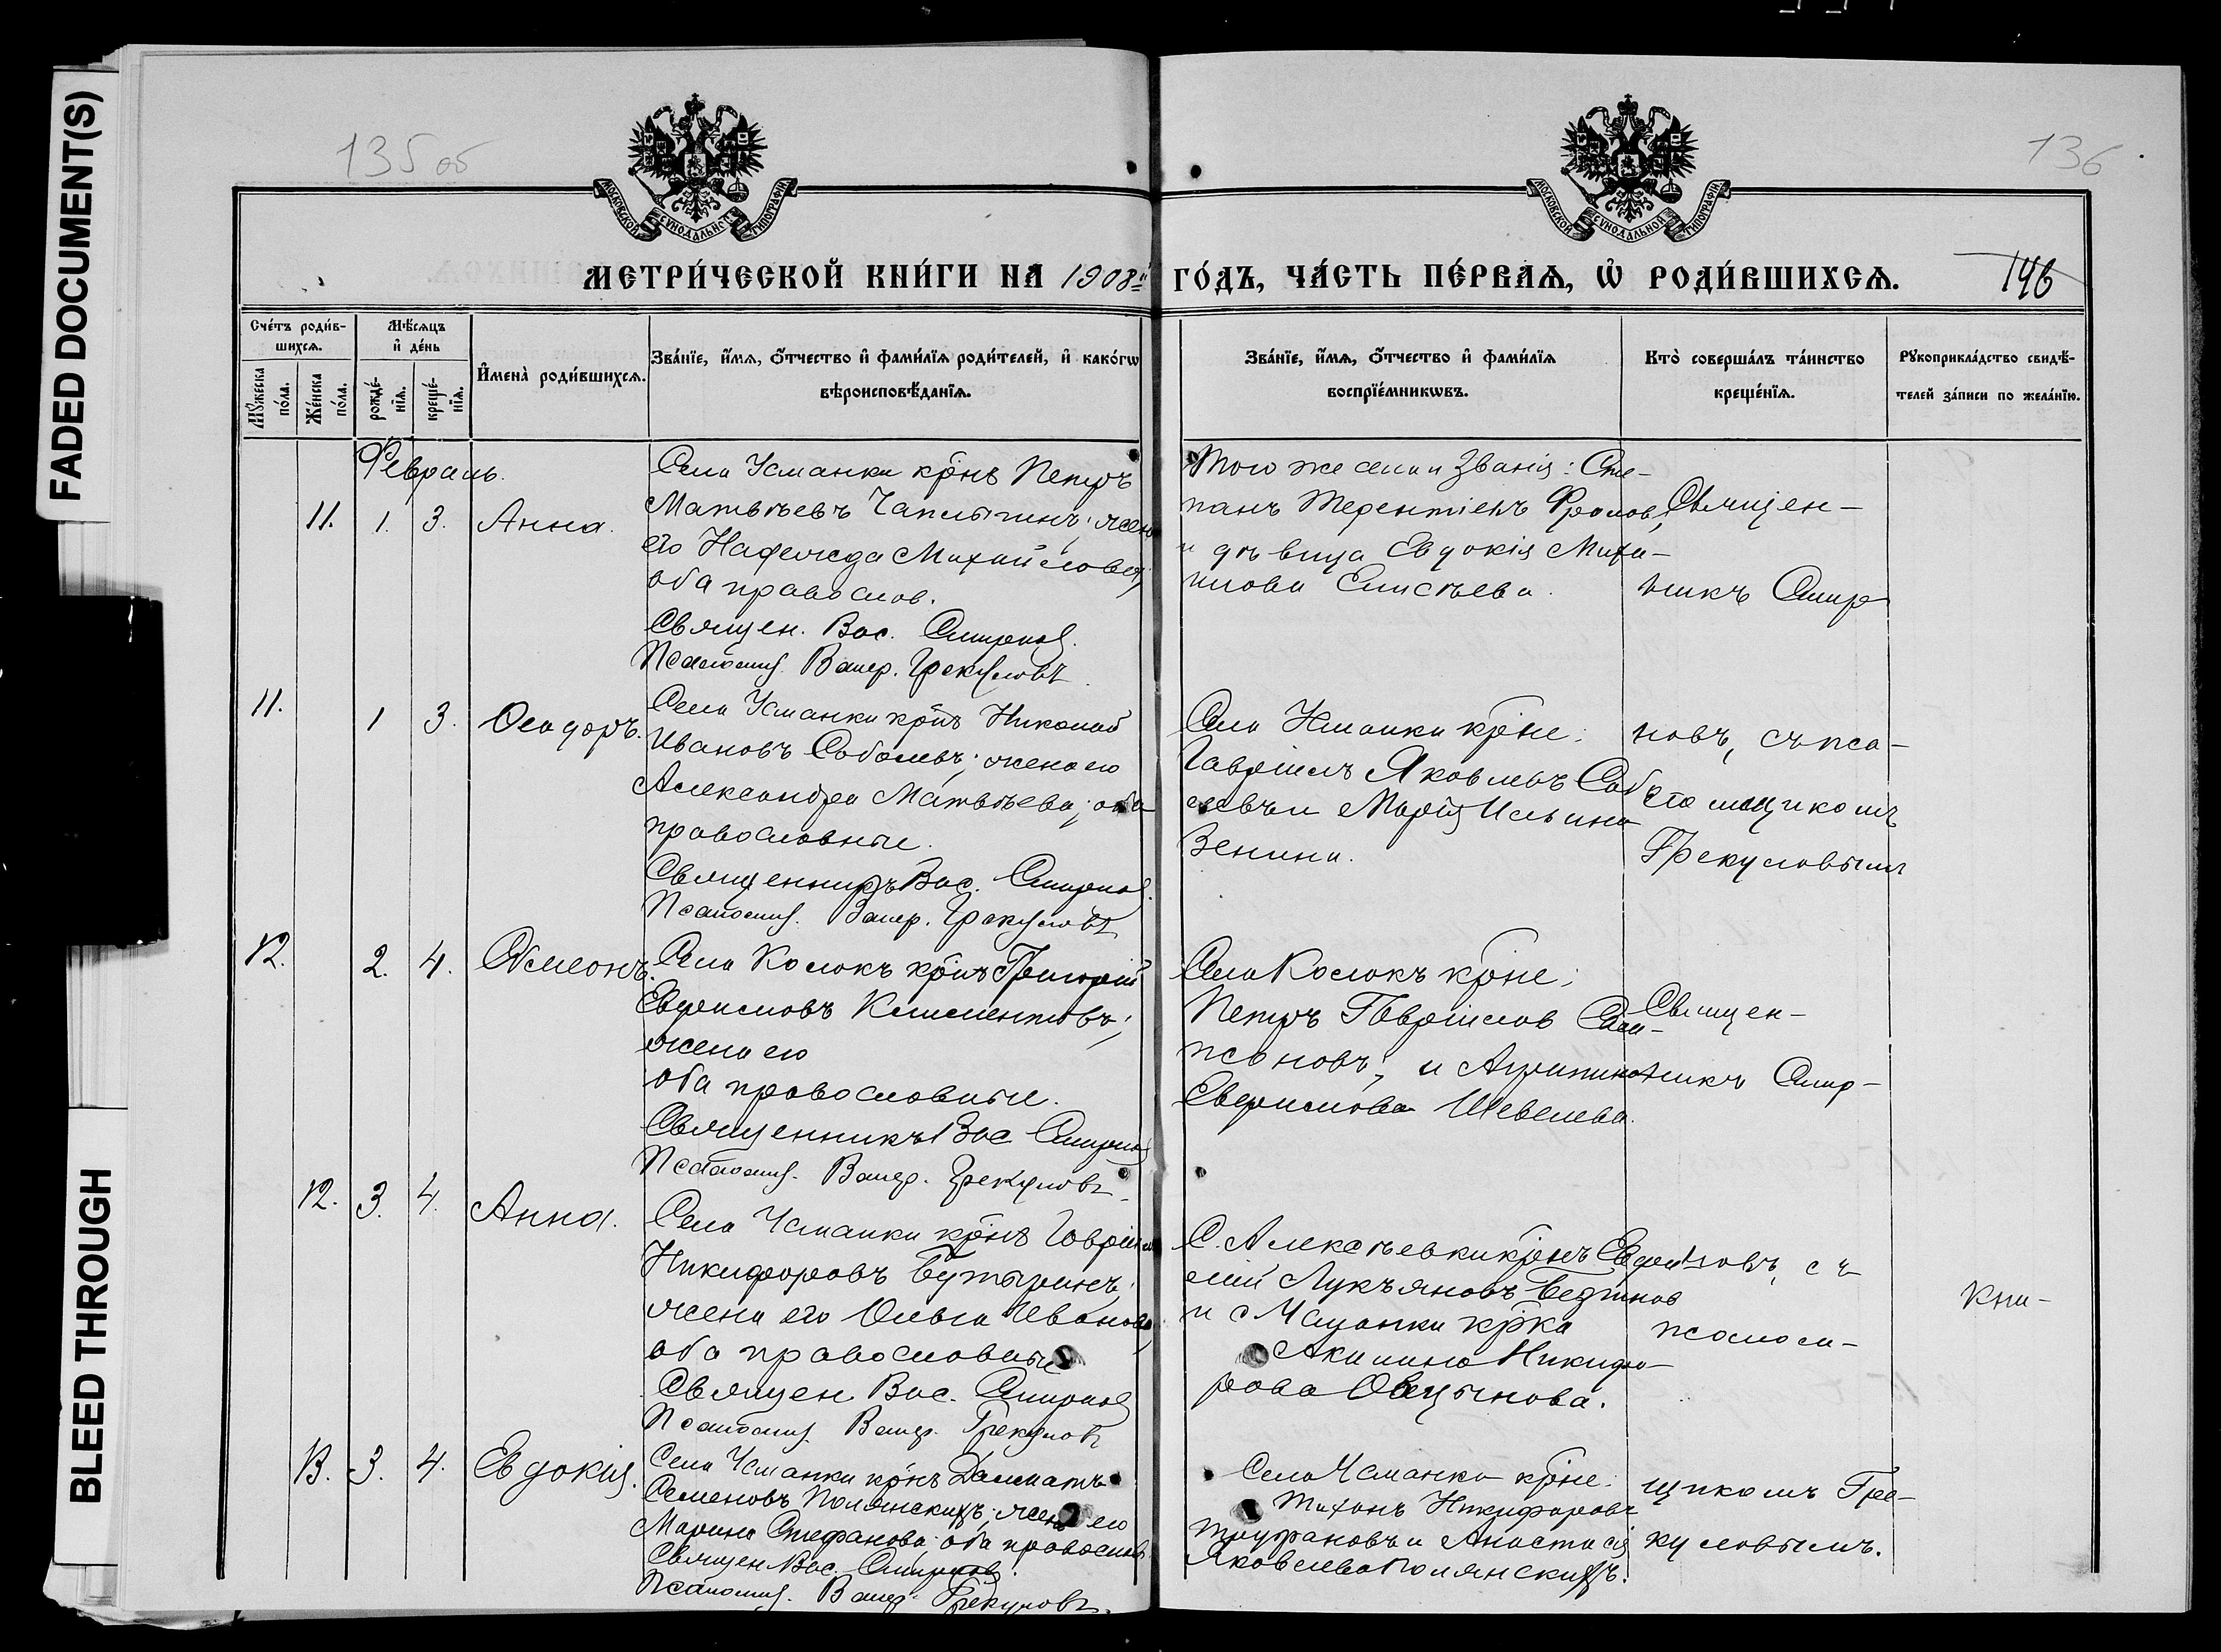 FADED DOCUMENT(S)
BLEED THROUGH
135 об
136
МОСКОВСКОЙ СѴНОДАЛЬНОЙ ТИПОГРАФІИ
МОСКОВСКОЙ СѴНОДАЛЬНОЙ ТИПОГРАФІИ
МЕТРИ́ЧЕСКОЙ КНИ́ГИ НА 1908й ГО́ДЪ, ЧА́СТЬ ПЕ́РВАѦ, Ѡ҆ РОДИ́ВШИХСѦ.
146
Сче́тъ роди́в-
шихсѧ.
Мꙋ́жеска по́ла.
Же́нска по́ла.
Мѣ́сѧцъ
и҆ де́нь
рожде́-
нїѧ.
креще́-
нїѧ.
И҆мена̀ роди́вшихсѧ.
Зва́нїе, и҆́мѧ, ѻ҆́тчество и҆ фами́лїѧ роди́телей, и҆ како́гѡ
вѣроисповѣ́данїѧ.
Зва́нїе, и҆́мѧ, ѻ҆́тчество и҆ фами́лїѧ
воспрїе́мникѡвъ.
Кто̀ соверша́лъ та́инство
креще́нїѧ.
Рꙋкоприкла́дство свидѣ́-
телей за́писи по жела́нїю.
Февраль.
11. 1. 3. Анна.
Села Усманки крнъ Петръ
Матвѣевъ Чаплыгинъ; жена
его Надежда Михайлова;
оба православ.
Священ. Вас. Смирнов.
Псаломщ. Валер. Грекуловъ
Того же села и званія: Сте-
панъ Терентіевъ Фролов,
и дѣвица Евдокія Миха-
илова Елисѣева.
Священ-
никъ Смир
11. 1 3. Ѳеодоръ.
Села Усманки крнъ Николай
Ивановъ Соболевъ; жена его
Александра Матвѣева; оба
православные.
Священникъ Вас. Смирнов.
Псаломщ. Валер. Грекуловъ
Села Усманки крне:
Гавріилъ Яковлевъ Собо
левъ и Марія Ильина
Зенина.
новъ, съ пса-
ломщикомъ
Грекуловымъ
12. 2. 4. Сѵмеонъ.
Села Колокъ крнъ Григорій
Климентовъ;
жена его
оба православные.
Священникъ Вас Смирнов
Псаломщ. Валер. Грекуловъ.
Села Колокъ крне;
Петръ Гавріилов Сам-
псоновъ; и Агрипина
Шевелева.
Священ-
никъ Смир-
12. 3. 4. Анна.
Села Усманки крнъ Гавріилъ
Никифоровъ Бутыринъ;
жена его Ольга Иванова,
оба православные
Священ Вас. Смирнов
Псаломщ. Валер. Грекуловъ
С. Алексѣевки крнъ
Лукъяновъ
и с Усманки крка
Акилина Никифо-
рова Овцынова.
новъ, съ
псалом-
Кни-
13. 3. 4. Евдокія.
Села Усманки крнъ Далматъ
Семеновъ Полянскихъ; жена его
Марина Стефанова оба православ.
Священ Вас. Смирнов.
Псаломщ. Валер. Грекуловъ.
Села Усманки крне:
Тихонъ Никифоровъ
Труфановъ и Анастасія
Яковлева Полянскихъ.
щикомъ Гре-
куловымъ.